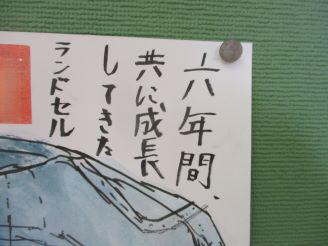 六年間、
共に成長
してきた
ランドセル